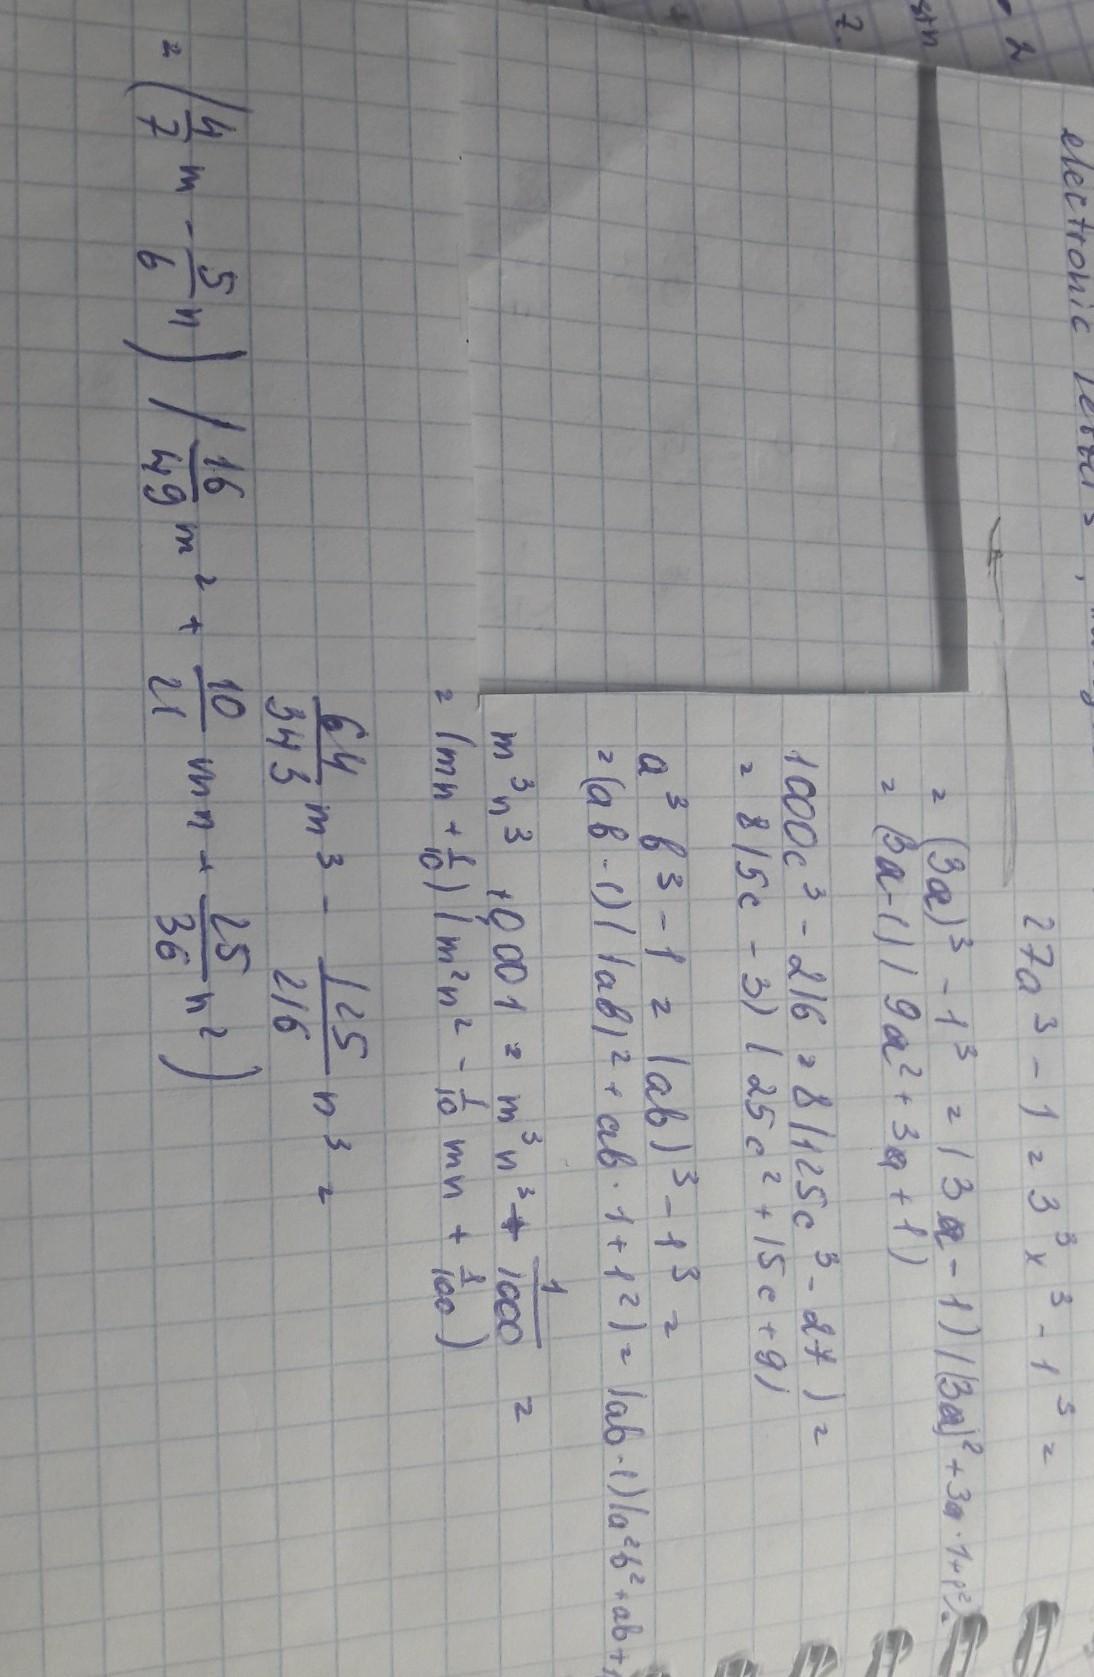 electronic
27a³ - 1 = 3³x³ - 1³ =
= (3a)³ - 1³ = (3a - 1)((3a)² + 3a · 1 + 1²) =
= (3a - 1)(9a² + 3a + 1)
1000c³ - 216 = 8(125c³ - 27) =
= 8(5c - 3)(25c² + 15c + 9)
a³b³ - 1 = (ab)³ - 1³ =
= (ab - 1)((ab)² + ab · 1 + 1²) = (ab - 1)(a²b² + ab +
m³n³ + 0,001 = m³n³ + 1/1000 =
= (mn + 1/10)(m²n² - 1/10 mn + 1/100)
64/343 m³ - 125/216 n³ =
= (4/7 m - 5/6 n)(16/49 m² + 10/21 mn + 25/36 n²)